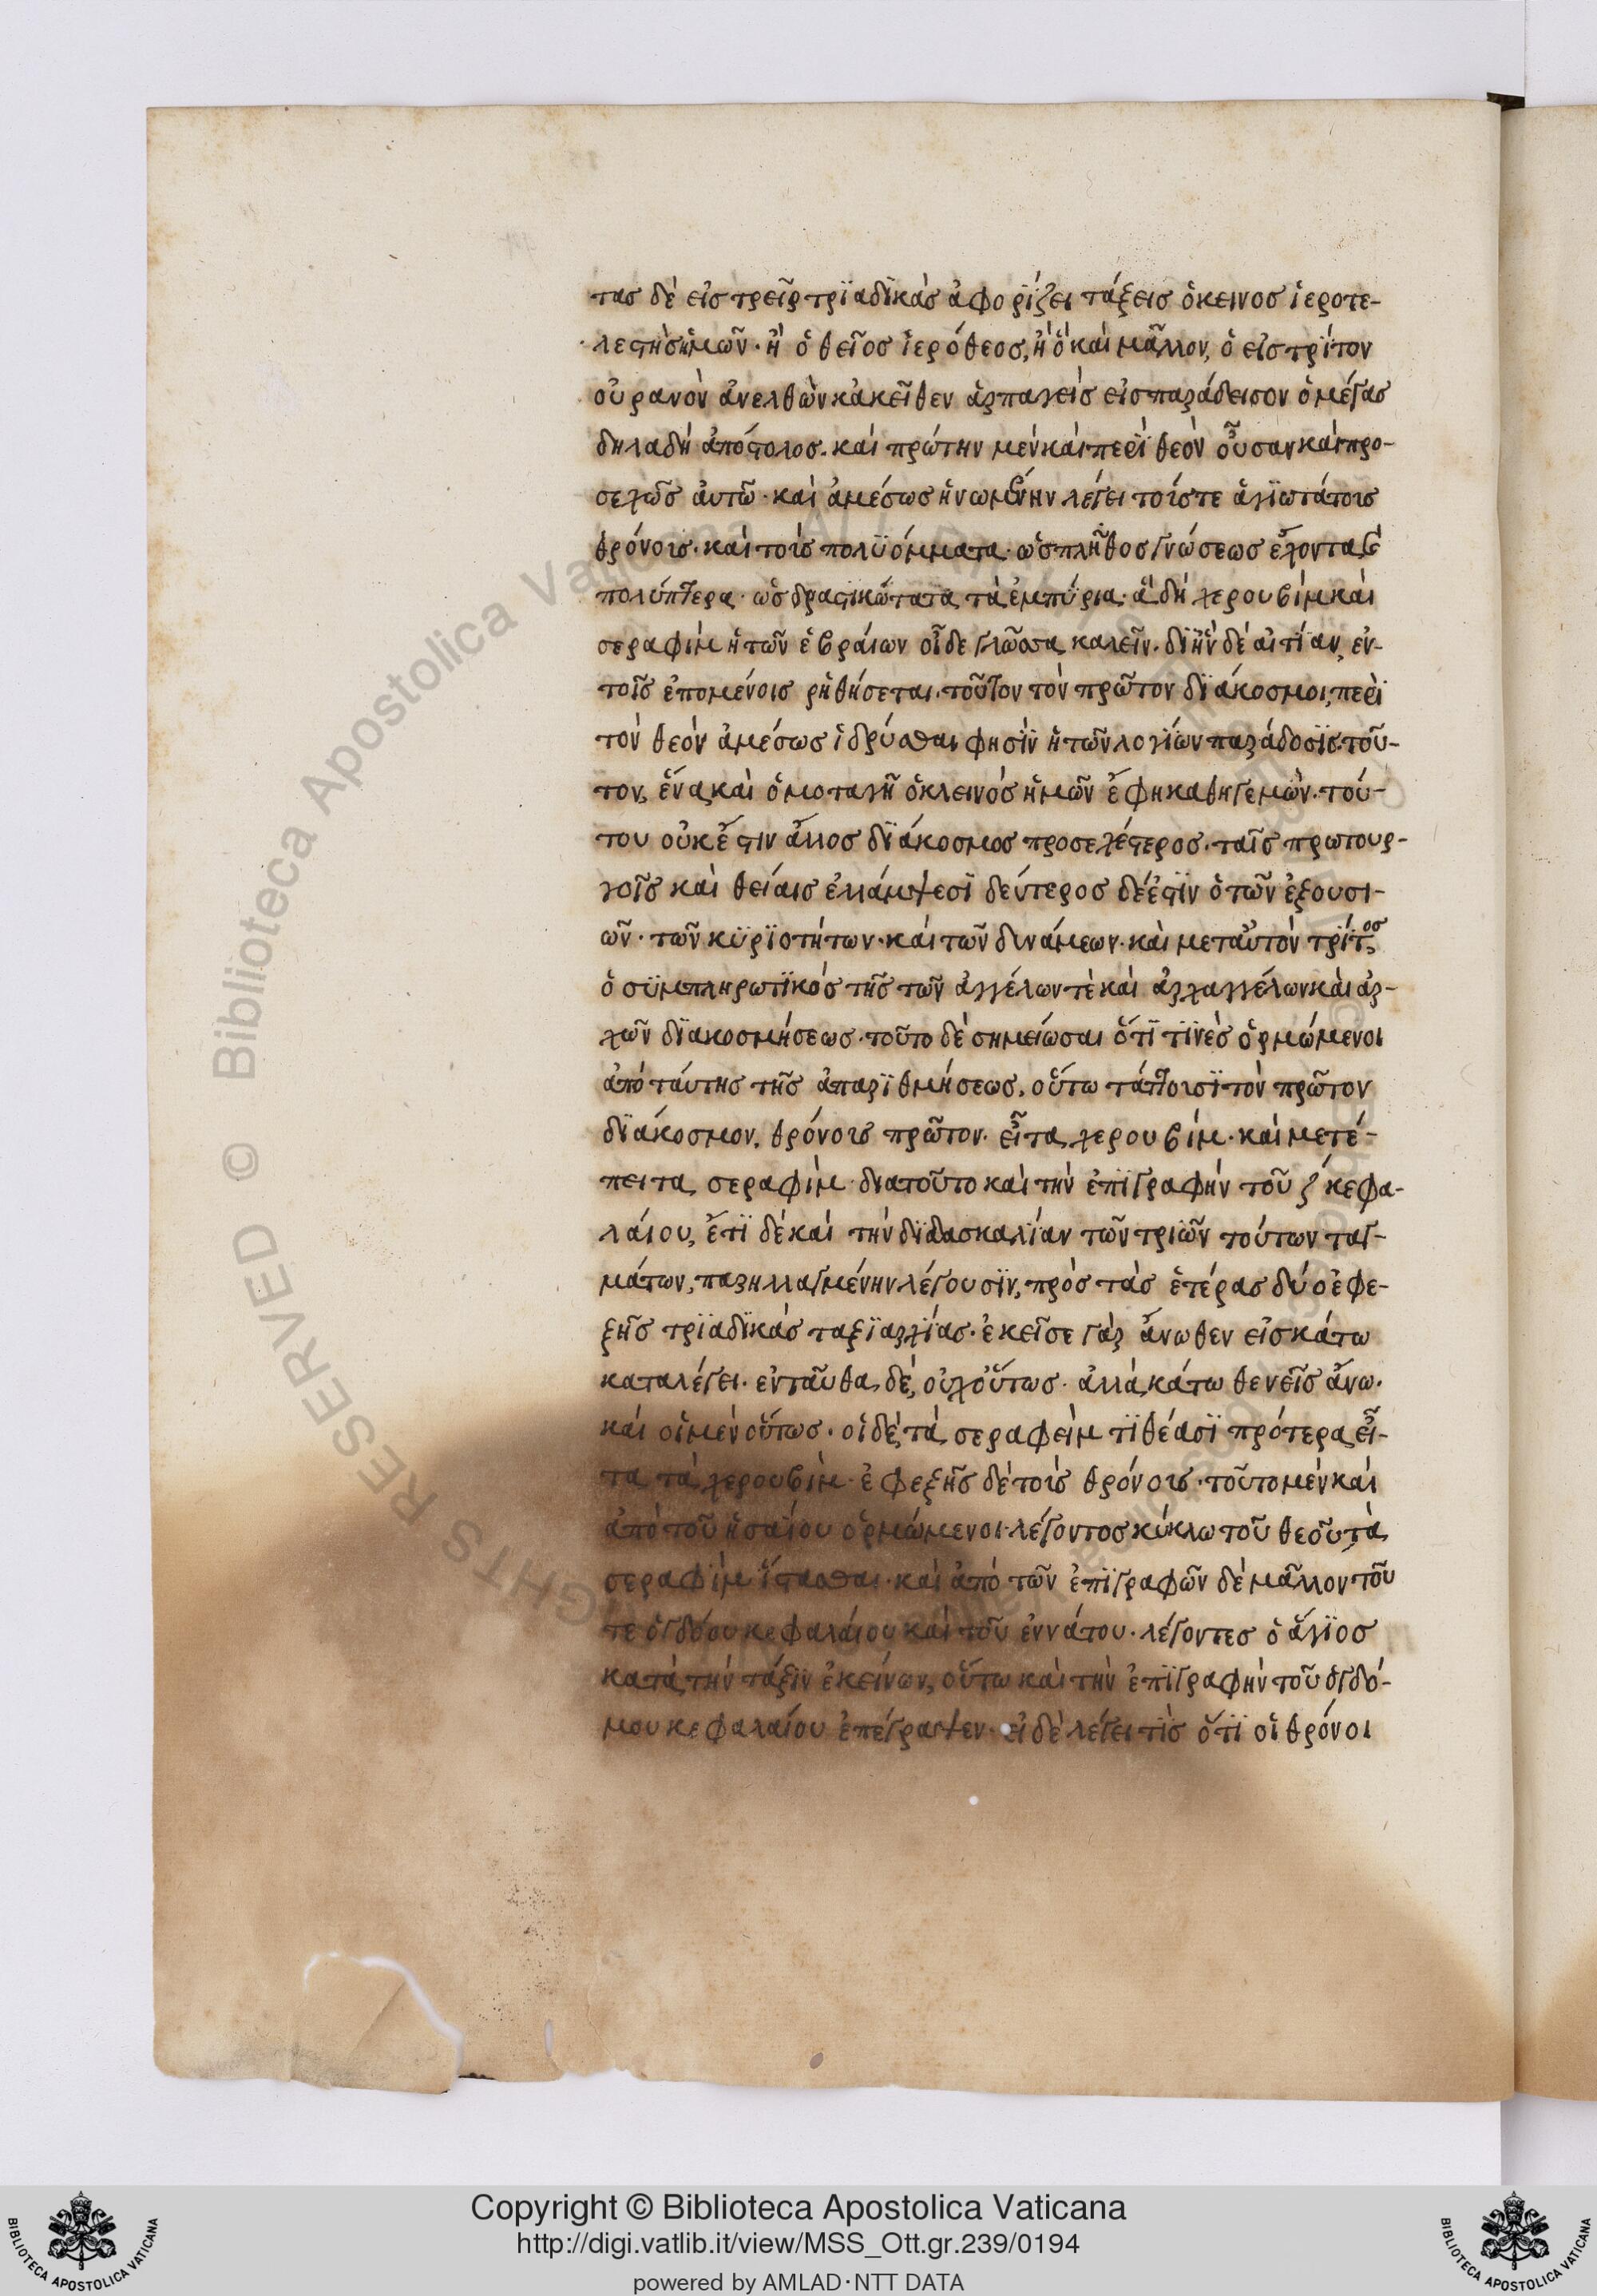 τας δὲ εἰς τρεῖς τρϊαδϊκὰς ἀφορΐζει τάξεις ὁκεινος ἱεροτε-
λεστὴςἡμῶν· ἢ ὁ θεῖος ἱερόθεος, ἢ ὁ καὶ μᾶλλον, ὁ εἰς τρΐτον
οὐρανὸν ἀνελθὼν κἀκεῖθεν ἁρπαγεὶς εἰς παράδεισον ὁ μέγας
δηλαδὴ ἀπόστολος. καὶ πρώτην μὲν καὶ περῒ θεὸν οὖσαν καὶ προ-
σεχῶς ἀυτῶ· καὶ ἀμέσως ἡνωμένην λέγει τοίς τε ἁγϊωτάτοις
θρόνοις· καὶ τοὶς πολϋόμματα· ὡς πλῆθος γνώσεως ἔχοντα καὶ
πολύπτερα· ὡς δραστικώτατα τὰ ἐμπύρια· ἃ δὴ χερουβὶμ καὶ
σεραφὶμ ἡ τῶν ἑβράιων οἶδε γλῶσσα καλεῖν· δϊ ἣν δὲ αἰτΐαν, ἐν
τοῖς ἑπομένοις ῥηθήσεται· τοῦτον τὸν πρῶτον δϊάκοσμον, περῒ
τὸν θεὸν ἀμέσως ἱδρύσθαι φησῒν ἡ τῶν λογΐων παράδοσϊς· τοῦ-
τον, ἕνα καὶ ὁμοταγῆ ὁ κλεινὸς ἡμῶν ἔφη καθηγεμὼν· τού-
του οὐκ ἔστιν ἄλλος δϊάκοσμος προσεχέστερος· ταῖς πρωτουρ-
γοῖς καὶ θείαις ἐλλάμψεσϊ δεύτερος δέ ἐστϊν ὁ τῶν ἐξουσι-
ῶν· τῶν κϋρϊοτήτων· καὶ τῶν δυνάμεων· καὶ μετ αὐτὸν τρίτος
ὁ σϋμπληρωτϊκός τῆς τῶν ἀγγέλων τὲ καὶ ἀρχαγγέλων καὶ ἀρ-
χῶν δϊακοσμήσεως· τοῦτο δὲ σημείωσαι ὅτϊ τϊνὲς ὁρμώμενοι
ἀπὸ ταύτης τῆς ἀπαρϊθμήσεως. οὕτω τάττοισϊ τὸν πρῶτον
δϊάκοσμον. θρόνοις πρῶτον· εἶτα χερουβίμ· καὶ μετέ-
πειτα σεραφὶμ· δια τοῦτο καὶ τὴν ἐπϊγραφὴν τοῦ ζ κεφα-
λάιου, ἔτϊ δὲ καὶ τὴν δϊδασκαλΐαν τῶν τριῶν τούτων ταγ-
μάτων, παρηλλαγμένην λέγουσϊν, πρὸς τὰς ἑτέρας δύο ἐφε-
ξῆς τρϊαδϊκὰς ταξϊαρχΐας· ἐκεῖσε γὰρ ἄνωθεν εἰς κάτω
καταλέγει· ἐνταῦθα δὲ, οὐχ οὕτως· ἀλλὰ κάτωθεν εἰς ἄνω·
καὶ οἱ μὲν οὕτως· οἱ δὲ τὰ σεραφεὶμ τϊθέασϊ πρότερα εἶ-
τα τὰ χερουβὶμ· ἐφεξῆς δὲ τοὶς θρόνοις· τοῦτο μὲν καὶ
ἀπὸ τοῦ ἡσαΐου ὁρμώμενοι· λέγοντος κύκλω τοῦ θεοῦ τὰ
σεραφὶμ ἵστασθαι· καὶ ἀπὸ τῶν ἐπϊγραφῶν δὲ μᾶλλον τοῦ
τε ὀγδόου κεφαλάιου καὶ τοῦ ἐννάτου· λέγοντες ὁ ἅγϊος
κατὰ τὴν τάξϊν ἐκείνων, οὕτω καὶ τὴν ἐπϊγραφὴν τοῦ ὀγδό-
μου κεφαλαίου ἐπέγραψεν· εἰ δὲ λέγει τῒς ὅτϊ οἱ θρόνοι
Biblioteca Apostolica Vaticana
RIGHTS RESERVED ©
Copyright © Biblioteca Apostolica Vaticana
http://digi.vatlib.it/view/MSS_Ott.gr.239/0194
powered by AMLAD·NTT DATA
BIBLIOTECA APOSTOLICA VATICANA
BIBLIOTECA APOSTOLICA VATICANA